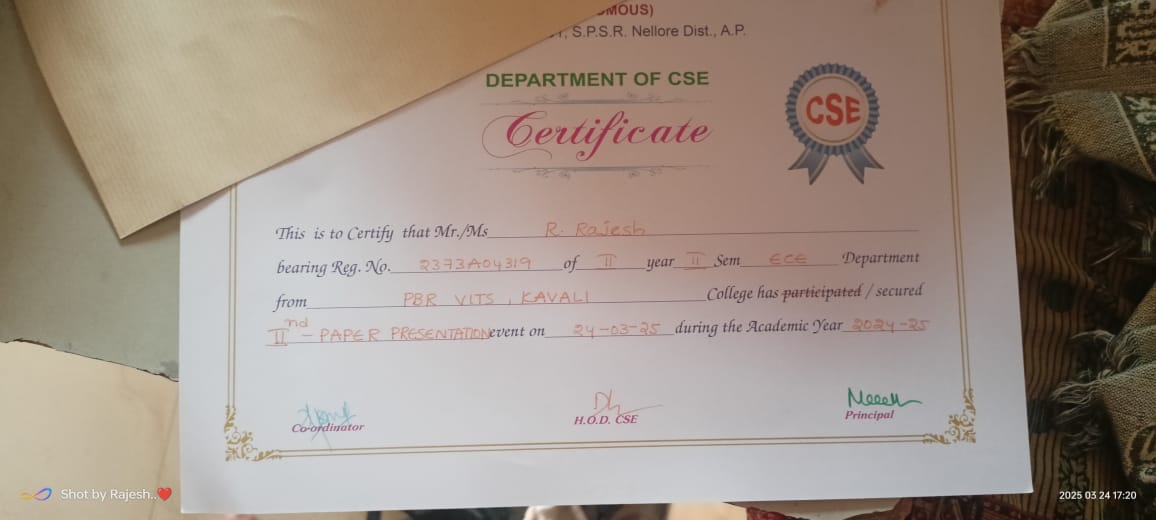 OMOUS)
, S.P.S.R. Nellore Dist., A.P.
DEPARTMENT OF CSE
CSE
Certificate
This is to Certify that Mr./Ms R. Rajesh
bearing Reg. No. 2373A04319 of II year II Sem ECE Department
from PBR VITS , KAVALI College has participated / secured
IInd - PAPER PRESENTATION event on 24-03-25 during the Academic Year 2024-25
Co-ordinator
H.O.D. CSE
Principal
Shot by Rajesh..❤️
2025 03 24 17:20